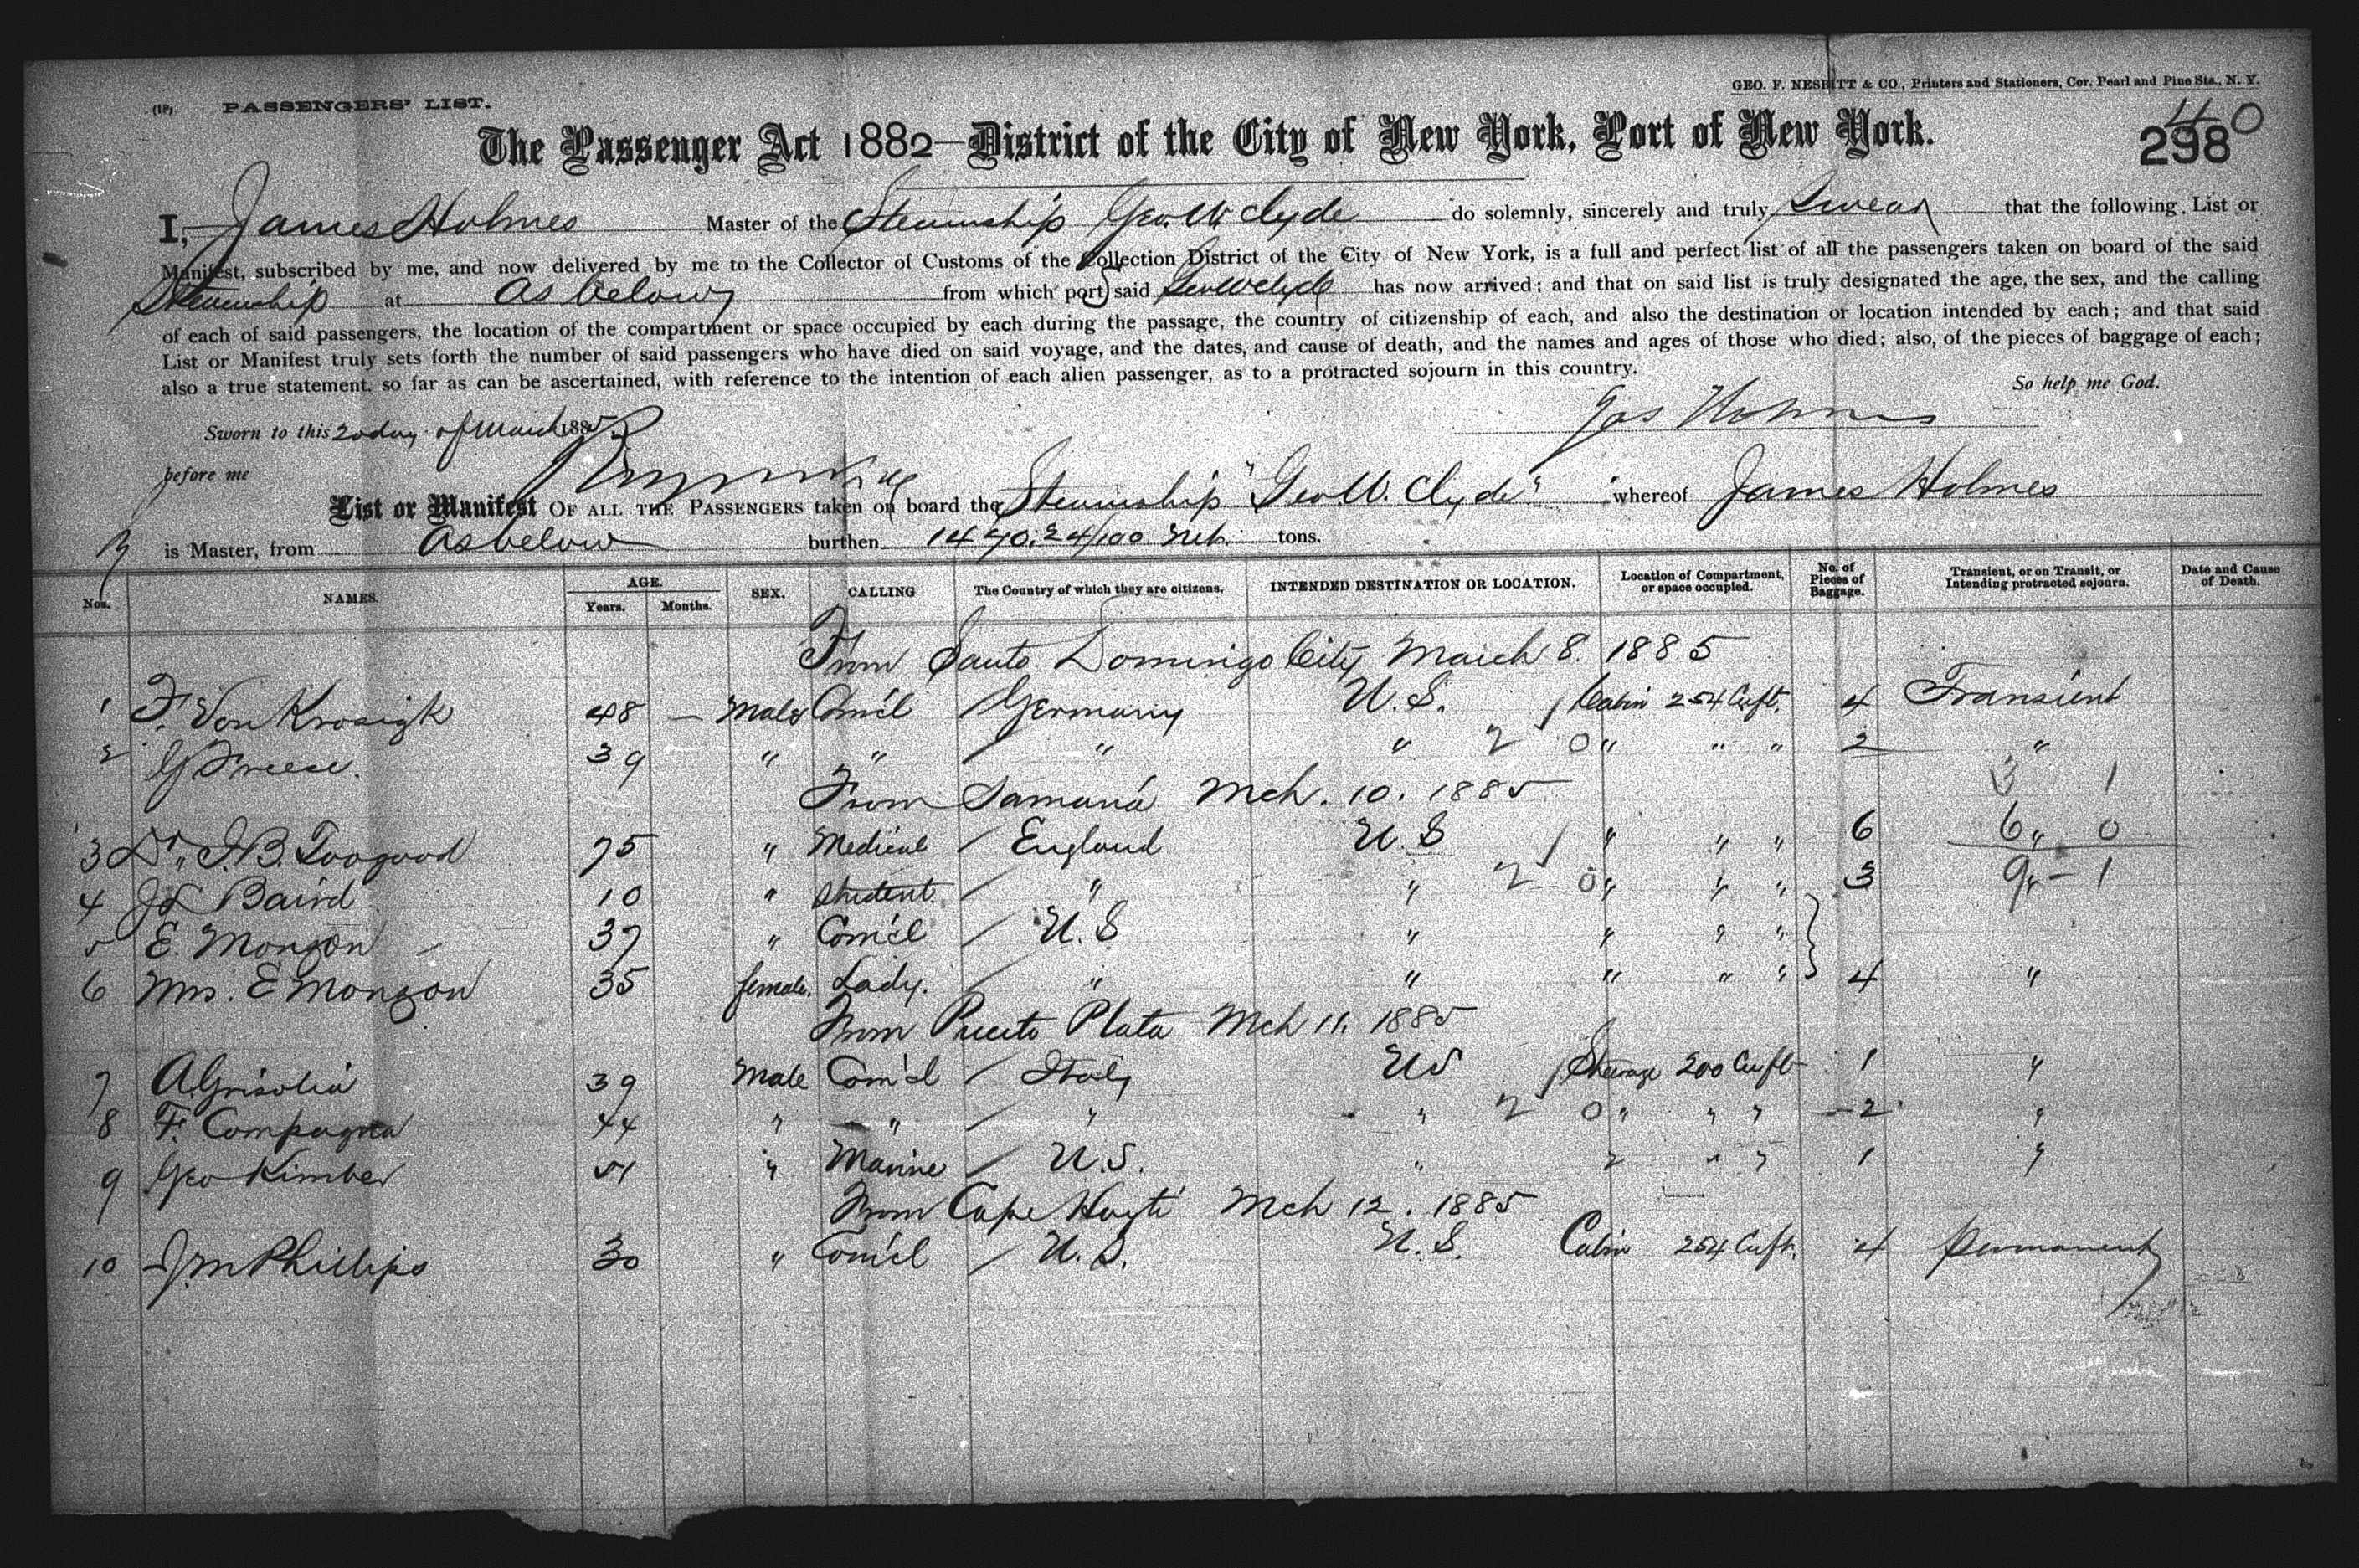 GEO. F. NESBITT & CO., Printers and Stationers, Cor. Pearl and Pine Sts., N. Y.
(18) PASSENGERS' LIST.
40
The Passenger Act 1882—District of the City of New York, Port of New York. 298
I, James Holmes Master of the Steamship Geo. W. Clyde do solemnly, sincerely and truly Swear that the following List or
Manifest, subscribed by me, and now delivered by me to the Collector of Customs of the Collection District of the City of New York, is a full and perfect list of all the passengers taken on board of the said
Steamship at As below from which port said Geo W Clyde has now arrived; and that on said list is truly designated the age, the sex, and the calling
of each of said passengers, the location of the compartment or space occupied by each during the passage, the country of citizenship of each, and also the destination or location intended by each; and that said
List or Manifest truly sets forth the number of said passengers who have died on said voyage, and the dates, and cause of death, and the names and ages of those who died; also, of the pieces of baggage of each;
also a true statement, so far as can be ascertained, with reference to the intention of each alien passenger, as to a protracted sojourn in this country.
So help me God.
Sworn to this 20 day of March 1885 Jas Holmes
before me
List or Manifest OF ALL THE PASSENGERS taken on board the Steamship "Geo W. Clyde" whereof James Holmes
is Master, from As below burthen 1440.24/100 Net. tons.
Nos. NAMES. AGE. Years. Months. SEX. CALLING The Country of which they are citizens. INTENDED DESTINATION OR LOCATION. Location of Compartment, or space occupied. No. of Pieces of Baggage. Transient, or on Transit, or Intending protracted sojourn. Date and Cause of Death.
From Santo Domingo City March 8. 1885
1 F. Von Krosigk 48 — Male Com'cl / Germany U.S. / Cabin 254 Cuft. 4 Transient
2 G Freese. 39 " " / " " 2 0 " " " 2 "
From Samaná Mch. 10. 1885 3 1
3 Dr. J.B. Toogood 75 " Medical / England U.S / " " " 6 6 " 0
4 J L Baird 10 " Student / " " 2 0 " " " 3 9 " - 1
5 E. Monzon 37 " Com'cl / U.S " " " "
6 Mrs. E Monzon 35 female. Lady. / " " " " " 4 "
From Puerto Plata Mch 11. 1885
7 A. Grisolia 39 Male Com'cl / Italy US / Steerage 200 Cuft 1 "
8 F. Compagna 44 " " / " " 2 0 " " " 2 "
9 Geo Kimber 51 " Marine / U.S. " " " " 1 "
From Cape Hayti Mch 12. 1885
10 J M Phillips 30 " Com'cl / U.S. U.S. Cabin 254 Cuft. 4 Permanent